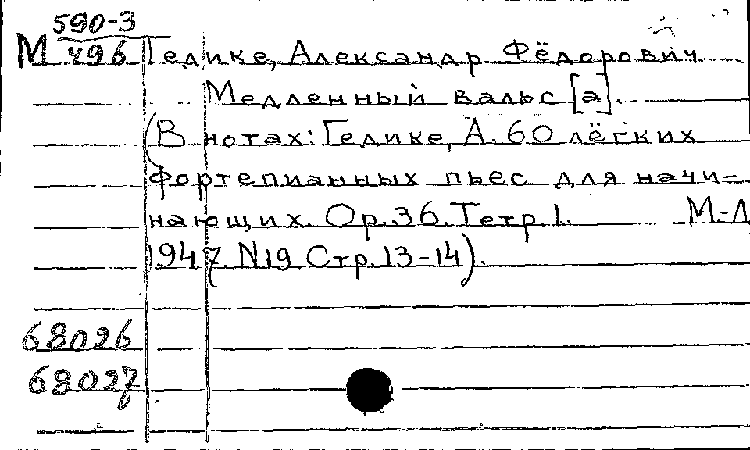 590-3
М 496 Гедике, Александр Фёдорович
Медленный вальс [a].
(В нотах: Гедике, А. 60 лёгких
фортепианных пьес для начи=
нающих. Op.36. Тетр.1. М-Л
1947 N19 Стр.13-14).
68026
68027